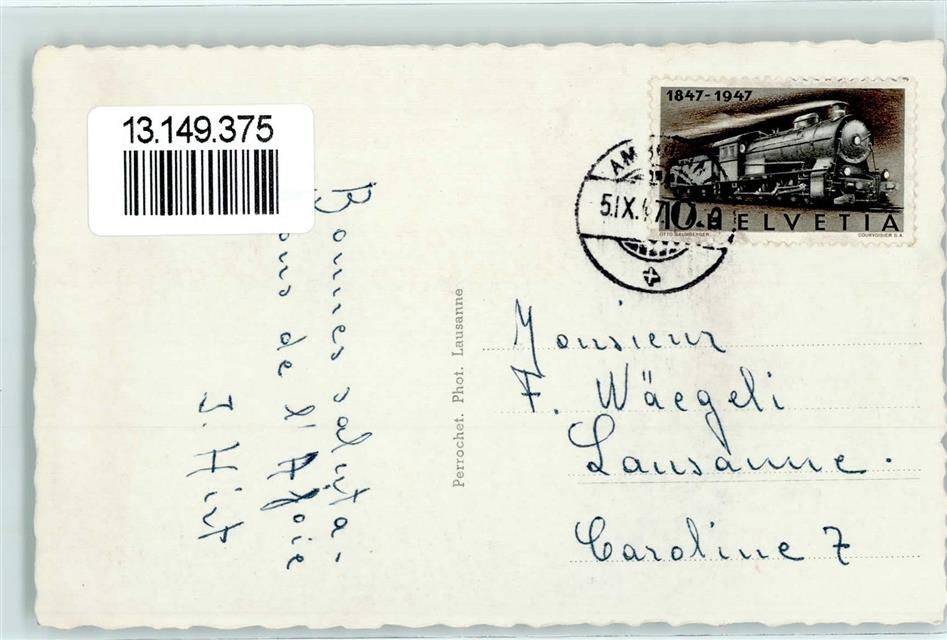 13.149.375
1847-1947
5.IX.47
10
HELVETIA
OTTO BAUMBERGER
COURVOISIER S.A.
Bonnes saluta-
de l'Ajoie
J. Hirt
Perrochet. Phot. Lausanne
Monsieur
F. Wäegeli
Lausanne.
Caroline 7